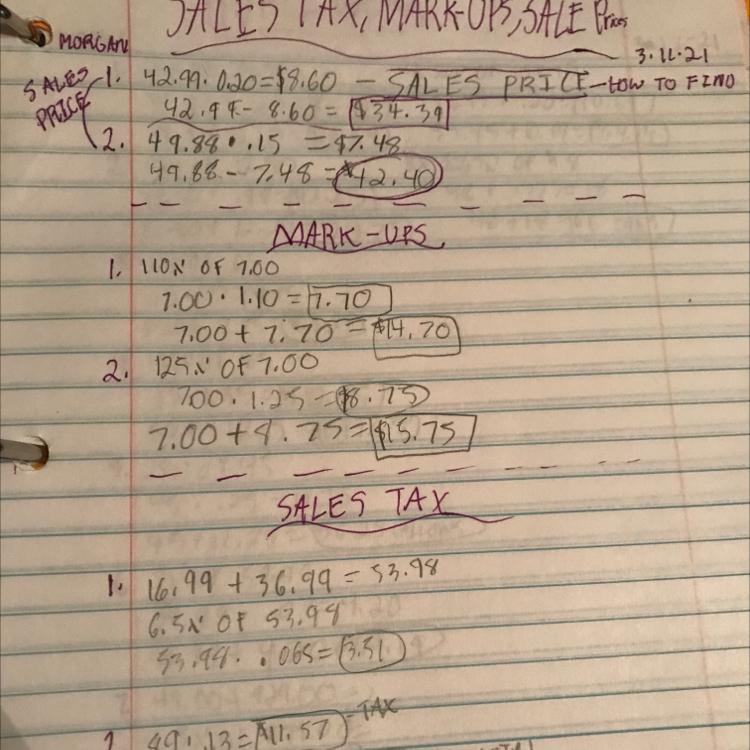 SALES TAX, MARK-UPS, SALE Prices
MORGAN
3.11.21
SALES PRICE
1. 42.99 · 0.20 = $8.60 — SALES PRICE — HOW TO FIND
42.99 - 8.60 = $34.39
2. 49.88 · .15 = $7.48
49.88 - 7.48 = $42.40
MARK-UPS
1. 110% OF 7.00
7.00 · 1.10 = 7.70
7.00 + 7.70 = $14.70
2. 125% OF 7.00
700 · 1.25 = $8.75
7.00 + 8.75 = $15.75
SALES TAX
1. 16.99 + 36.99 = 53.98
6.5% OF 53.98
53.98 · .065 = 3.51
2. 89 · .13 = $11.57 - TAX